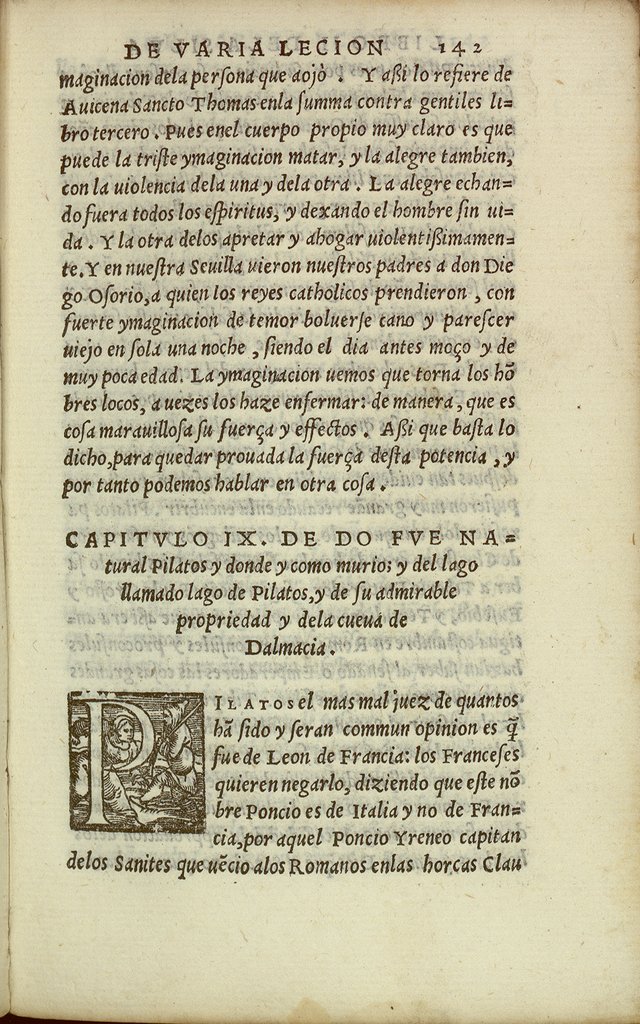 DE VARIA LECION 142
maginacion dela persona que aojò . Y aßi lo refiere de
Auicena Sancto Thomas enla summa contra gentiles li=
bro tercero . Pues enel cuerpo propio muy claro es que
puede la triste ymaginacion matar, y la alegre tambien,
con la uiolencia dela una y dela otra . La alegre echan=
do fuera todos los espiritus, y dexando el hombre sin ui=
da . Y la otra delos apretar y ahogar uiolentißimamen=
te. Y en nuestra Seuilla uieron nuestros padres a don Die
go Osorio, a quien los reyes catholicos prendieron , con
fuerte ymaginacion de temor boluerse cano y parescer
uiejo en sola una noche , siendo el dia antes moço y de
muy poca edad. La ymaginacion uemos que torna los hõ
bres locos, a uezes los haze enfermar: de manera, que es
cosa marauillosa su fuerça y effectos . Aßi que basta lo
dicho, para quedar prouada la fuerça desta potencia , y
por tanto podemos hablar en otra cosa .
CAPITVLO IX. DE DO FVE NA=
tural Pilatos y donde y como murio; y del lago
llamado lago de Pilatos, y de su admirable
propriedad y dela cueua de
Dalmacia .
PILATOS el mas mal juez de quantos
hã sido y seran commun opinion es q̃
fue de Leon de Francia: los Franceses
quieren negarlo, diziendo que este nõ
bre Poncio es de Italia y no de Fran=
cia, por aquel Poncio Yreneo capitan
delos Sanites que uẽcio alos Romanos enlas horcas Clau